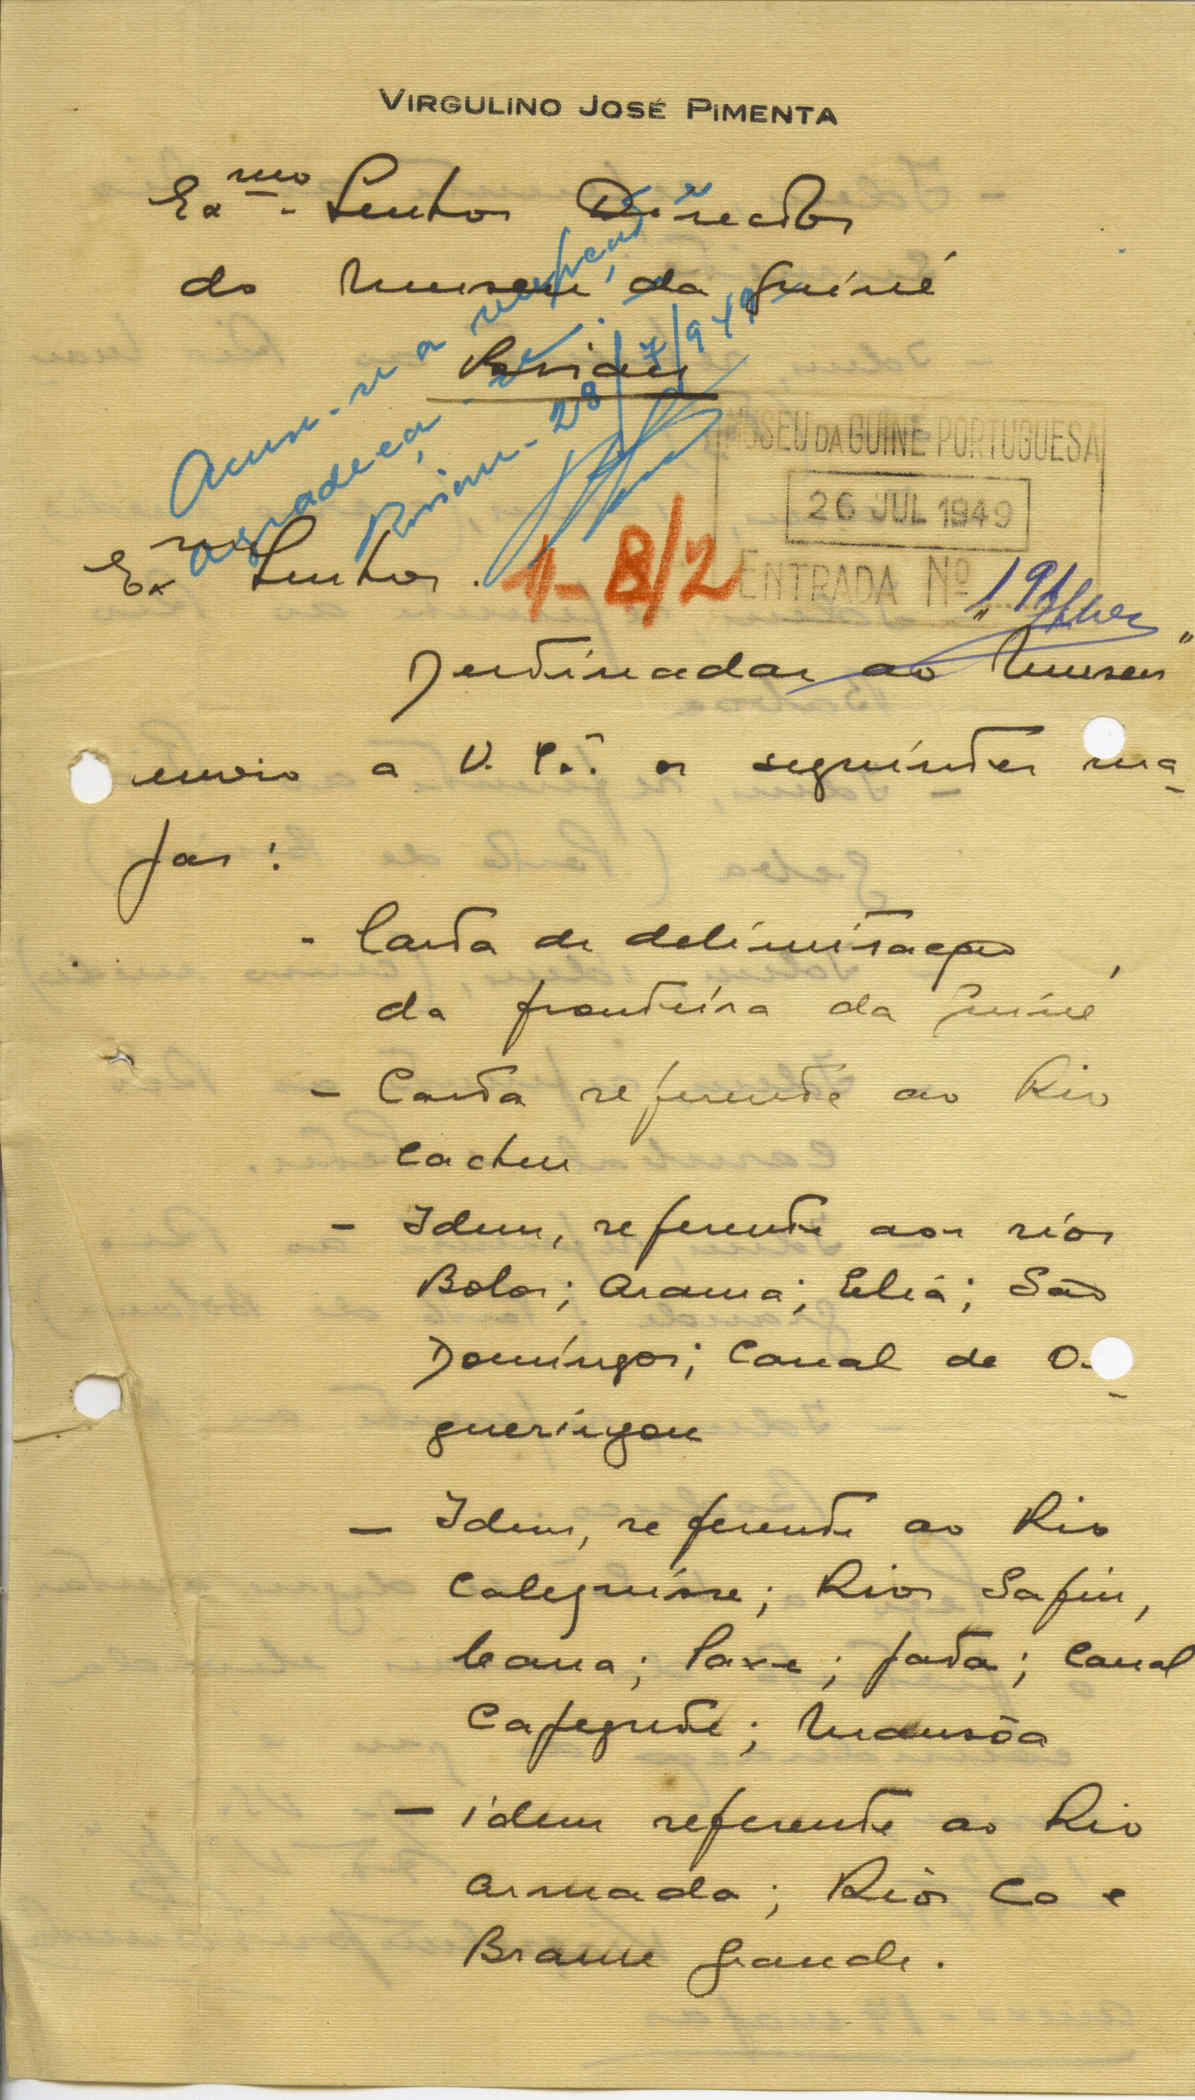 VIRGULINO JOSÉ PIMENTA
Exmo. Senhor Director
do Museu da Guiné
Bissau
Acuse-se a recepção e
agradeça-se.
Bissau-28/7/949
MUSEU DA GUINÉ PORTUGUESA
26 JUL 1949
ENTRADA Nº
1-8/2
Exmo Senhor.
Destinadas ao "Museu"
envio a V. Exª. os seguintes ma-
pas:
- Carta de delimitação
da fronteira da Guiné
- Carta referente ao Rio
Cacheu
- Idem, referente aos rios
Bolor; Arama; Eliá; São
Domingos; Canal de
gueringou
- Idem, referente ao Rio
Calequisse; Rios Safim,
Jata; Canal
Capegude; Mansôa
- idem referente ao Rio
Armada; Rios Co e
Brame Grande.